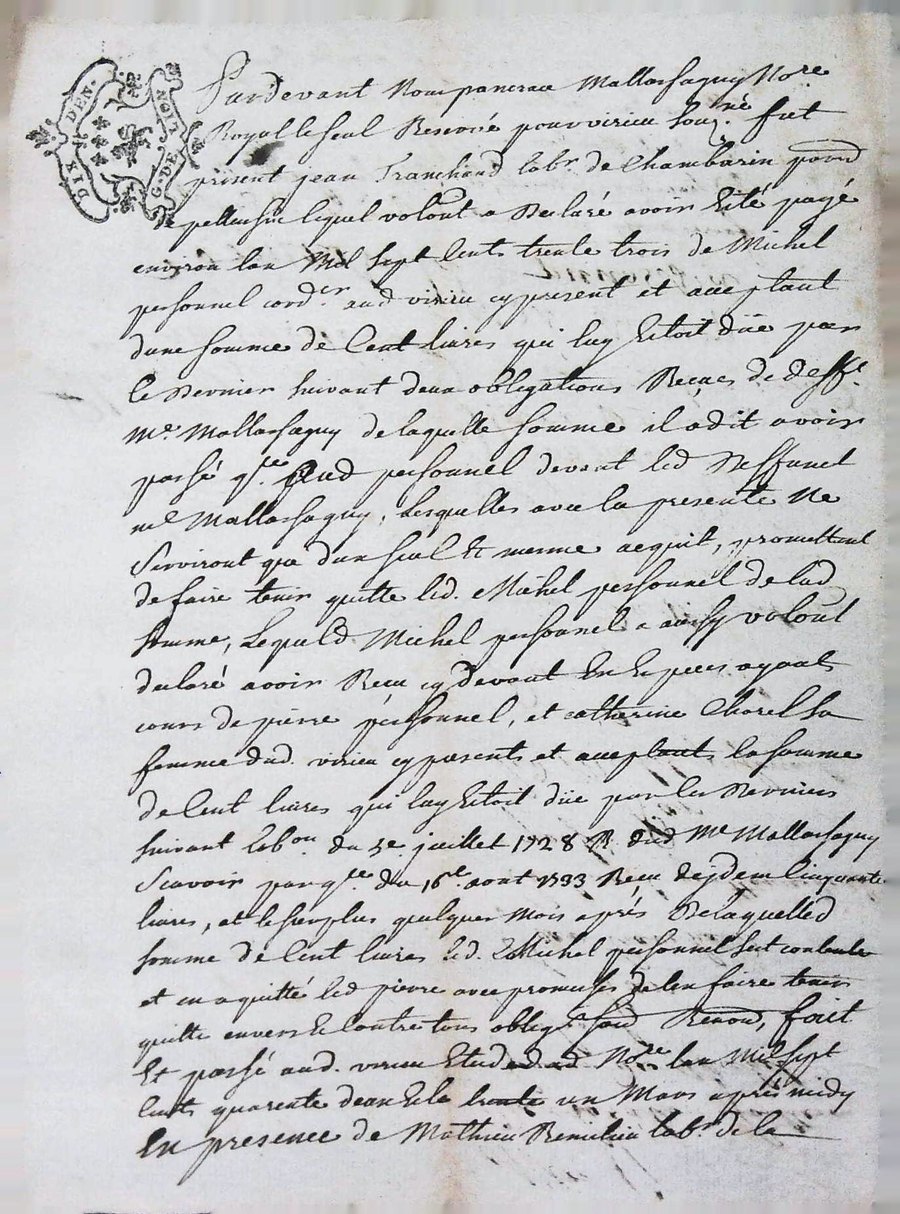 DIX DEN. G. DE LION
Pardevant Nous pancrace Mallarsaguy No.re
Royal le seul Reservé pour virieu souz.né fut
présent jean Tranchand lab.r de Chambarin par.
de lequel volont. a Declaré avoir Eté payé
environ lan Mil sept Cents trente trois de Michel
personnel cord.er aud virieu cy present et acceptant
dune somme de Cent livres qui luy Etoit düe par
le Dernier suivant deux obligations Reçues de deff.t
M.e Mallarsaguy de laquelle somme il a dit avoir
passé q.ce aud personnel devant led deffunct
m.e Mallarsaguy, Lesquelles avec la presente Ne
Serviront que dun seul Et mesme acquit, promettant
de faire tenir quitte led. Michel personnel de lad
somme, Lequel d Michel personnel a aussy volont
declaré avoir Receu cy devant En Especes ayant
cours de pierre personnel, et catherine Charel sa
femme dud. virieu cy presents et acceptants la somme
de Cent livres qui luy Etoit düe par les Derniers
suivant lob.on du 5.e juillet 1728 R. dud M.e Mallarsaguy
Scavoir par q.ce du 16.e aout 1733 Receu dejdem Cinquante
livres, et le surplus quelques mois aprés De laquelle d
somme de Cent livres led. Michel personnel sest contenté
et en a quitté led pierre avec promesses de len faire tenir
quitte envers Et contre tous oblig. soud Renon, fait
Et passé aud. virieu Etude de No.re lan Mil sept
Cents quarente deux Et le trente un Mars aprés midy
En presence de Mathieu Remilieu lab.r de la